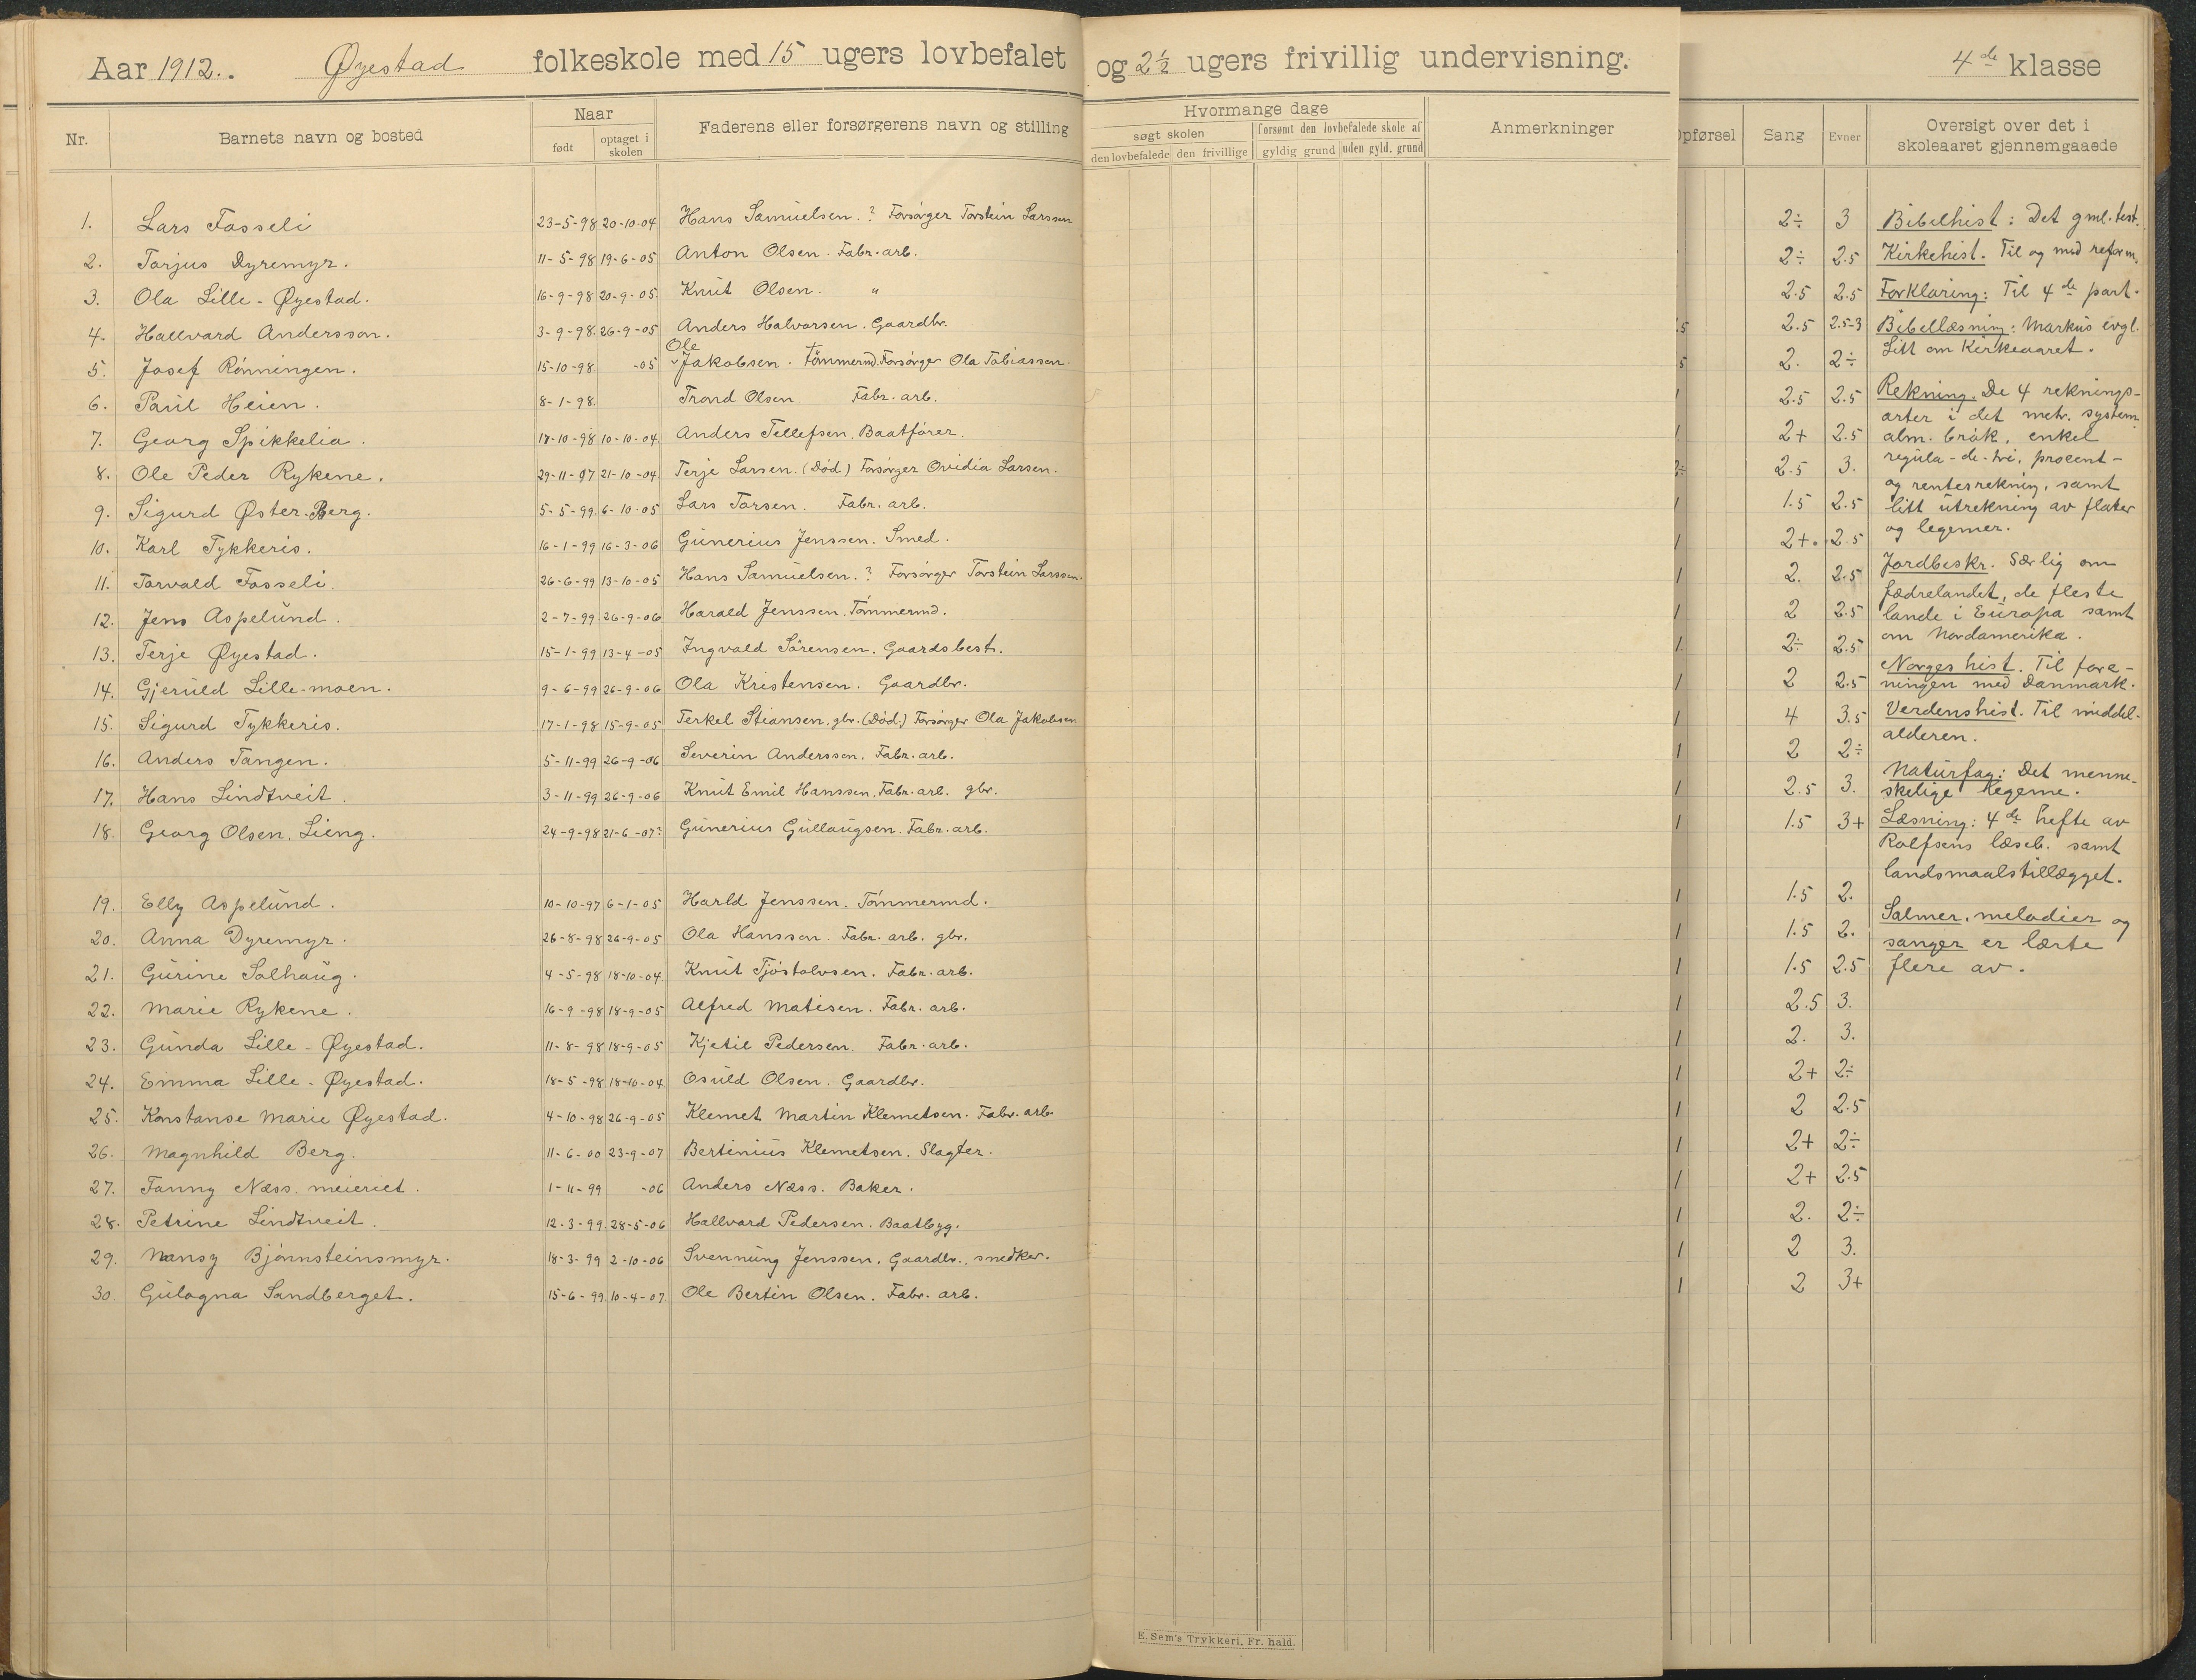 Aar 1912. Øyestad folkeskole med 15 ugers lovbefalet og 2½ ugers frivillig undervisning. 4de klasse
Nr. Barnets navn og bosted Naar født optaget i skolen Faderens eller forsørgerens navn og stilling
Hvormange dage
søgt skolen forsømt den lovbefalede skole af
den lovbefalede den frivillige gyldig grund uden gyld. grund
Anmerkninger
Opførsel Sang Evner Oversigt over det i skoleaaret gjennemgaaede
1. Lars Fosseli 23-5-98 20-10-04 Hans Samuelsen. ? Forsørger Torstein Larssen
2. Torjus Dyremyr. 11-5-98 19-6-05 Anton Olsen. Fabr. arb.
3. Ola Lille-Øyestad. 16-9-98 20-9-05. Knut Olsen. "
4. Hallvard Anderssen. 3-9-98. 26-9-05 Anders Halvorsen. Gaardbr.
5. Josef Rønningen. 15-10-98 -05 Ole Jakobsen. Tømmermd. Forsørger Ola Tobiassen.
6. Paul Heien. 8-1-98. Trond Olsen. Fabr. arb.
7. Georg Spikkelia. 17-10-98 10-10-04. Anders Tellefsen. Baatfører.
8. Ole Peder Rykene. 29-11-97 21-10-04. Terje Larsen. (Død) Forsørger Ovidia Larsen.
9. Sigurd Øster-Berg. 5-5-99. 6-10-05 Lars Torsen. Fabr. arb.
10. Karl Tykkeris. 16-1-99 16-3-06 Gunerius Jenssen. Smed.
11. Torvald Fosseli. 26-6-99 13-10-05 Hans Samuelsen. ? Forsørger Torstein Larssen.
12. Jens Aspelund. 2-7-99. 26-9-06 Harald Jenssen. Tømmermd.
13. Terje Øyestad. 15-1-99 13-4-05 Ingvald Sørensen. Gaardsbest.
14. Gjeruld Lille-moen. 9-6-99 26-9-06 Ola Kristensen. Gaardbr.
15. Sigurd Tykkeris. 17-1-98 15-9-05 Terkel Stiansen, gbr. (Død.) Forsørger Ola Jakobsen
16. Anders Tangen. 5-11-99 26-9-06 Severin Anderssen. Fabr. arb.
17. Hans Lindtveit. 3-11-99 26-9-06 Knut Emil Hanssen. Fabr. arb. gbr.
18. Georg Olsen. Lieng. 24-9-98 21-6-07? Gunerius Gullaugsen. Fabr. arb.
19. Elly Aspelund. 10-10-97 6-1-05 Harld Jenssen. Tømmermd.
20. Anna Dyremyr. 26-8-98 26-9-05 Ola Hanssen. Fabr. arb. gbr.
21. Gurine Solhaug. 4-5-98 18-10-04. Knut Tjøstolvsen. Fabr. arb.
22. Marie Rykene. 16-9-98 18-9-05 Alfred Matisen. Fabr. arb.
23. Gunda Lille-Øyestad. 11-8-98 18-9-05 Kjetil Pedersen. Fabr. arb.
24. Emma Lille-Øyestad. 18-5-98 18-10-04 Osuld Olsen. Gaardbr.
25. Konstanse Marie Øyestad. 4-10-98 26-9-05 Klemet Martin Klemetsen. Fabr. arb.
26. Magnhild Berg. 11-6-00 23-9-07 Bertinius Klemetsen. Slagter.
27. Fanny Næss. meieriet. 1-11-99 -06 Anders Næss. Baker.
28. Petrine Lindtveit. 12-3-99. 28-5-06 Hallvard Pedersen. Baatbyg.
29. Nansy Bjønnsteinsmyr. 18-3-99 2-10-06 Svennung Jenssen. Gaardbr., snedker.
30. Gulogna Sandberget. 15-6-99. 10-4-07 Ole Bertin Olsen. Fabr. arb.
E. Sem's Trykkeri, Fr. hald.
2÷ 3
2÷ 2.5
2.5 2.5
2.5 2.5-3
2. 2÷
1 2.5 2.5
1 2+ 2.5
2÷ 2.5 3.
1 1.5 2.5
1 2+. 2.5
1 2. 2.5
1 2 2.5
1. 2÷ 2.5
1 2 2.5
1 4 3.5
1 2 2÷
1 2.5 3.
1 1.5 3+
1 1.5 2.
1 1.5 2.
1 1.5 2.5
1 2.5 3.
1 2. 3.
1 2+ 2÷
1 2 2.5
1 2+ 2÷
1 2+ 2.5
1 2. 2÷
1 2 3.
1 2 3+
Bibelhist: Det gml. test.
Kirkehist. Til og med reform.
Forklaring: Til 4de part.
Bibellæsning: Markus evgl.
Litt om Kirkeaaret.
Rekning. De 4 reknings-
arter i det metr. system.
alm. brøk, enkel
regula-de-tri, procent-
og rentesrekning, samt
litt utrekning av flater
og legemer.
Jordbeskr. Særlig om
fædrelandet, de fleste
lande i Europa samt
om Nordamerika.
Norges hist. Til fore-
ningen med Danmark.
Verdenshist. Til middel-
alderen.
Naturfag: Det menne-
skelige legeme.
Læsning: 4de hefte av
Rolfsens læseb. samt
landsmaalstillægget.
Salmer, melodier og
sanger er lærte
flere av.